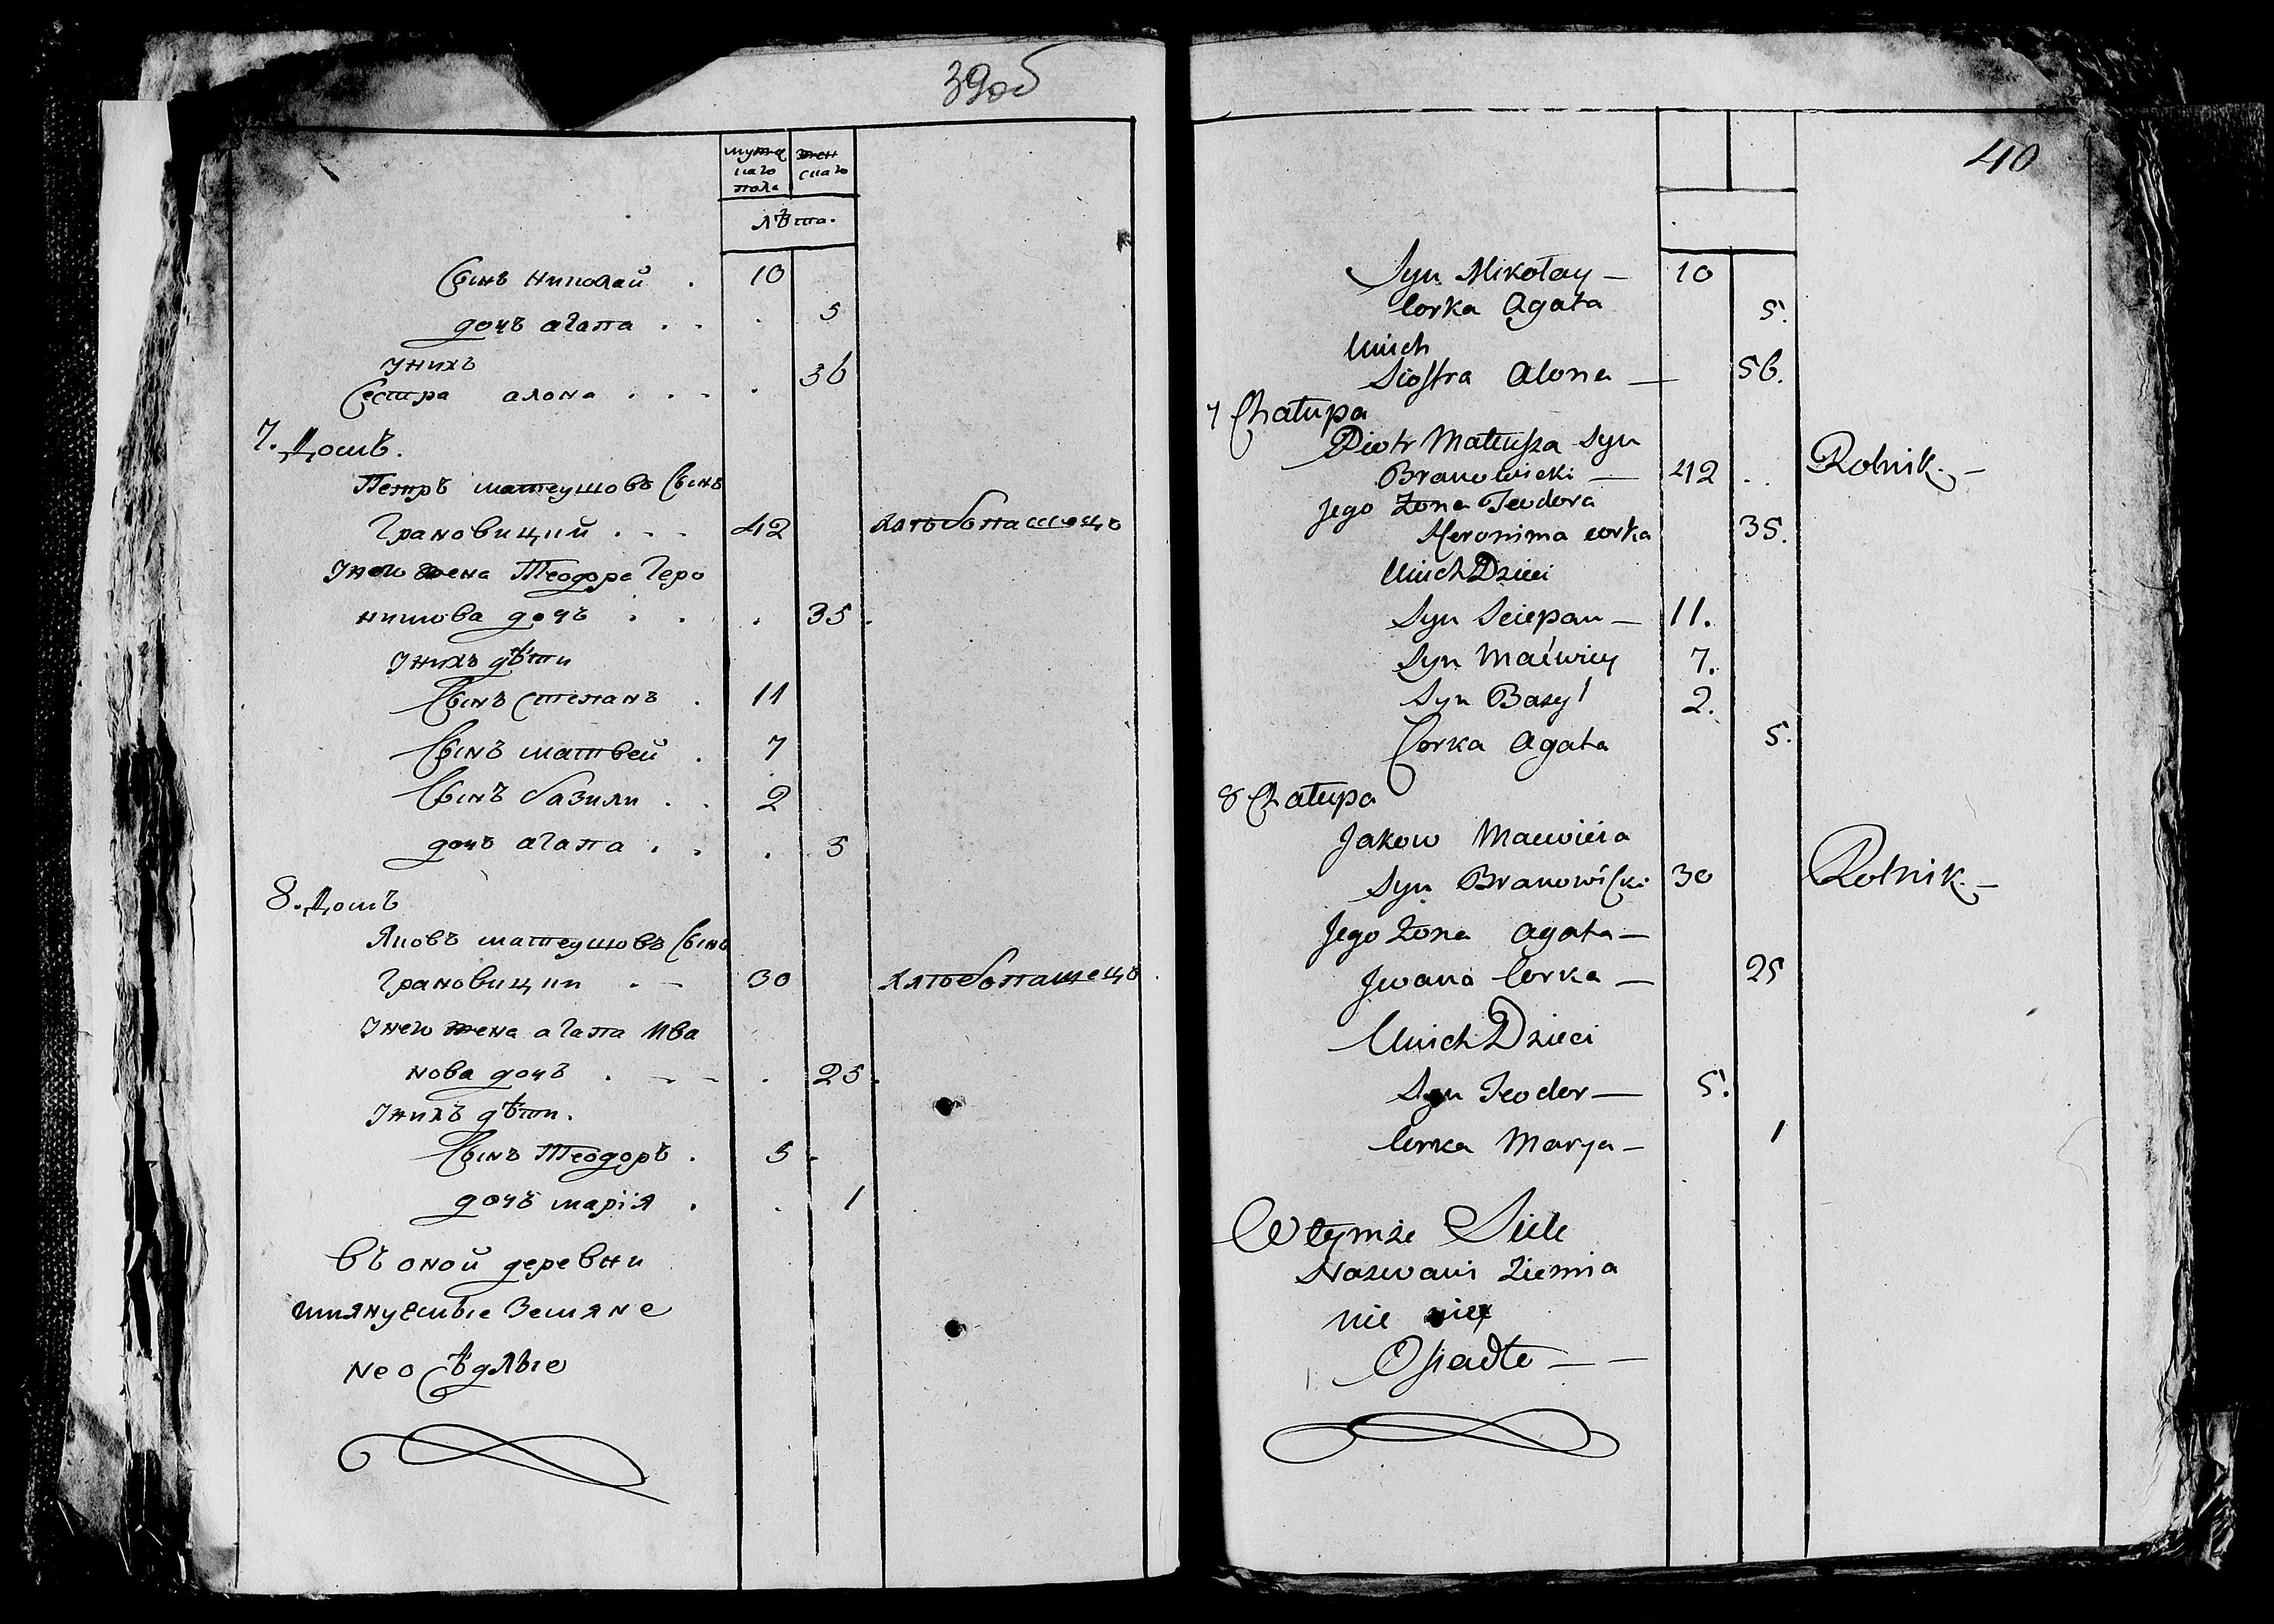 39об
мужескаго пола
женскаго
лѣта.
Сынъ николай . 10
дочь агата . . . 5
У нихъ
Сестра алона . . . . 36
7. Домъ.
Петръ матеушовъ Сынъ
Грановицкий . . . 42 хлѣбопашецъ
У него жена Теодора Геро
нимова дочь . . . 35.
У нихъ дѣти
Сынъ степанъ . 11
Сынъ матвей . 7
Сынъ базили . . 2
дочь агата . . . 5
8. Домъ
Яковъ матеушовъ Сынъ
Грановицки . - 30 хлѣбопашецъ.
У него жена агата Ива
нова дочь . - - . 25.
У нихъ дѣти.
Сынъ Теодоръ . 5.
дочь марія . . 1
Въ оной деревни
земяне
не осѣдлые
40
Syn Mikołay — 10
Corka Agata 5.
Unich
Siostra Alona — 56.
7 Chałupa
Piotr Mateusza Syn
Branowicki — 42 . . Rolnik. —
Jego Zona Teodora
Heronima corka 35.
Unich Dzieci
Syn Sciepan — 11.
Syn Maćwiey 7.
Syn Bazyl 2.
Corka Agata 5.
8 Chałupa
Jakow Maćwieia
Syn Branowicki 30 Rolnik. —
Jego Zona Agata —
Jwana Corka — 25
Unich Dzieci
Syn Teodor — 5.
Corka Marya — 1
W tymże Siele
Nazwani Ziemia
nie nie
Osiadłe — —